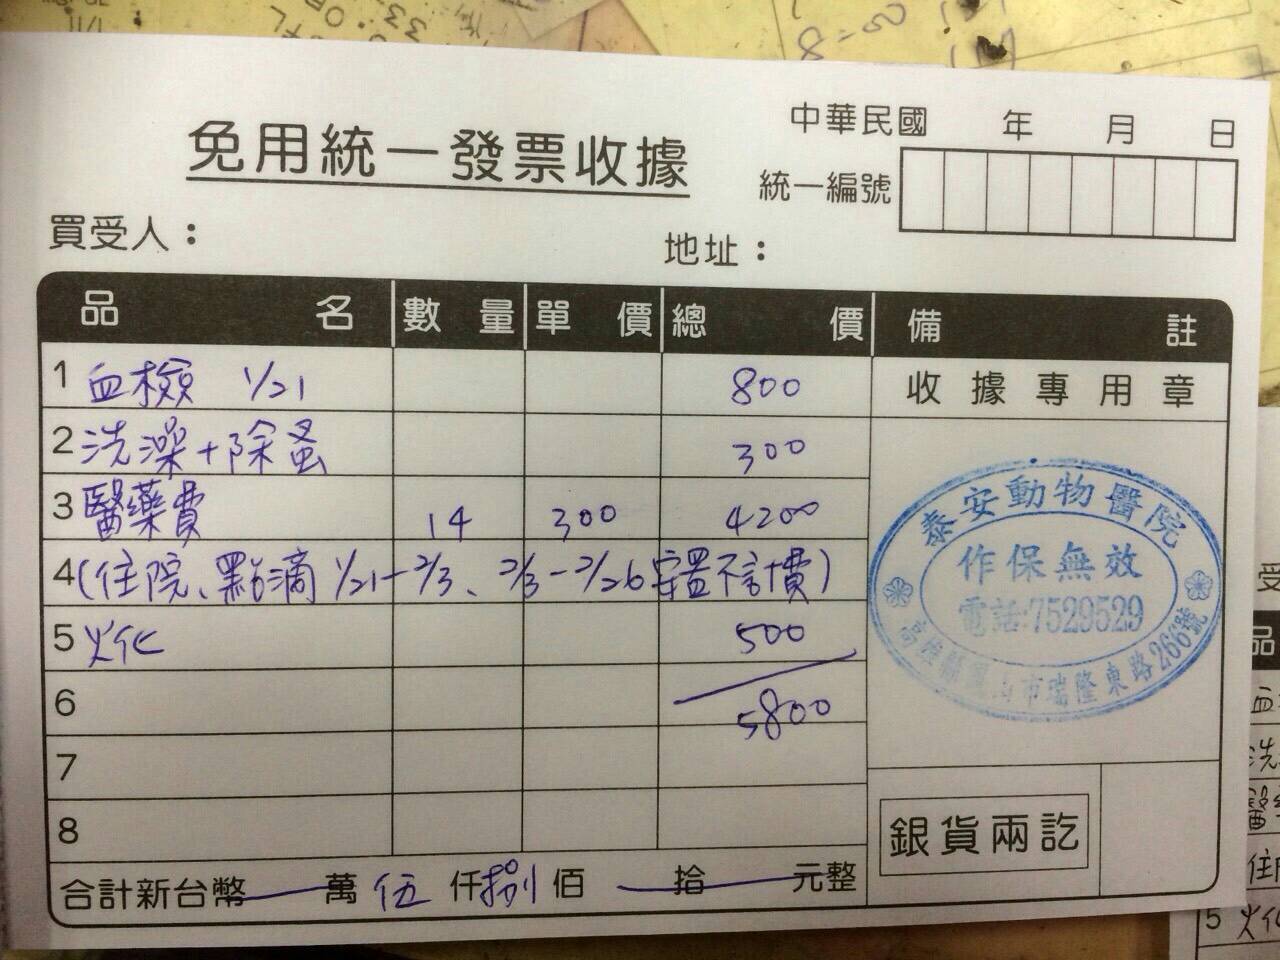 免用統一發票收據
中華民國 年 月 日
統一編號
買受人：
地址：
品名 數量 單價 總價 備註
1 血檢 1/21 800
收據專用章
2 洗澡+除蚤 300
3 醫藥費 14 300 4200
4 (住院、點滴 1/21-2/3、2/3-2/26安置不計費)
5 火化 500
6 5800
7
8
泰安動物醫院
作保無效
電話:7529529
高雄縣鳳山市瑞隆東路266號
銀貨兩訖
合計新台幣 萬 伍 仟 捌 佰 拾 元整
血
洗
醫
住
5 火化